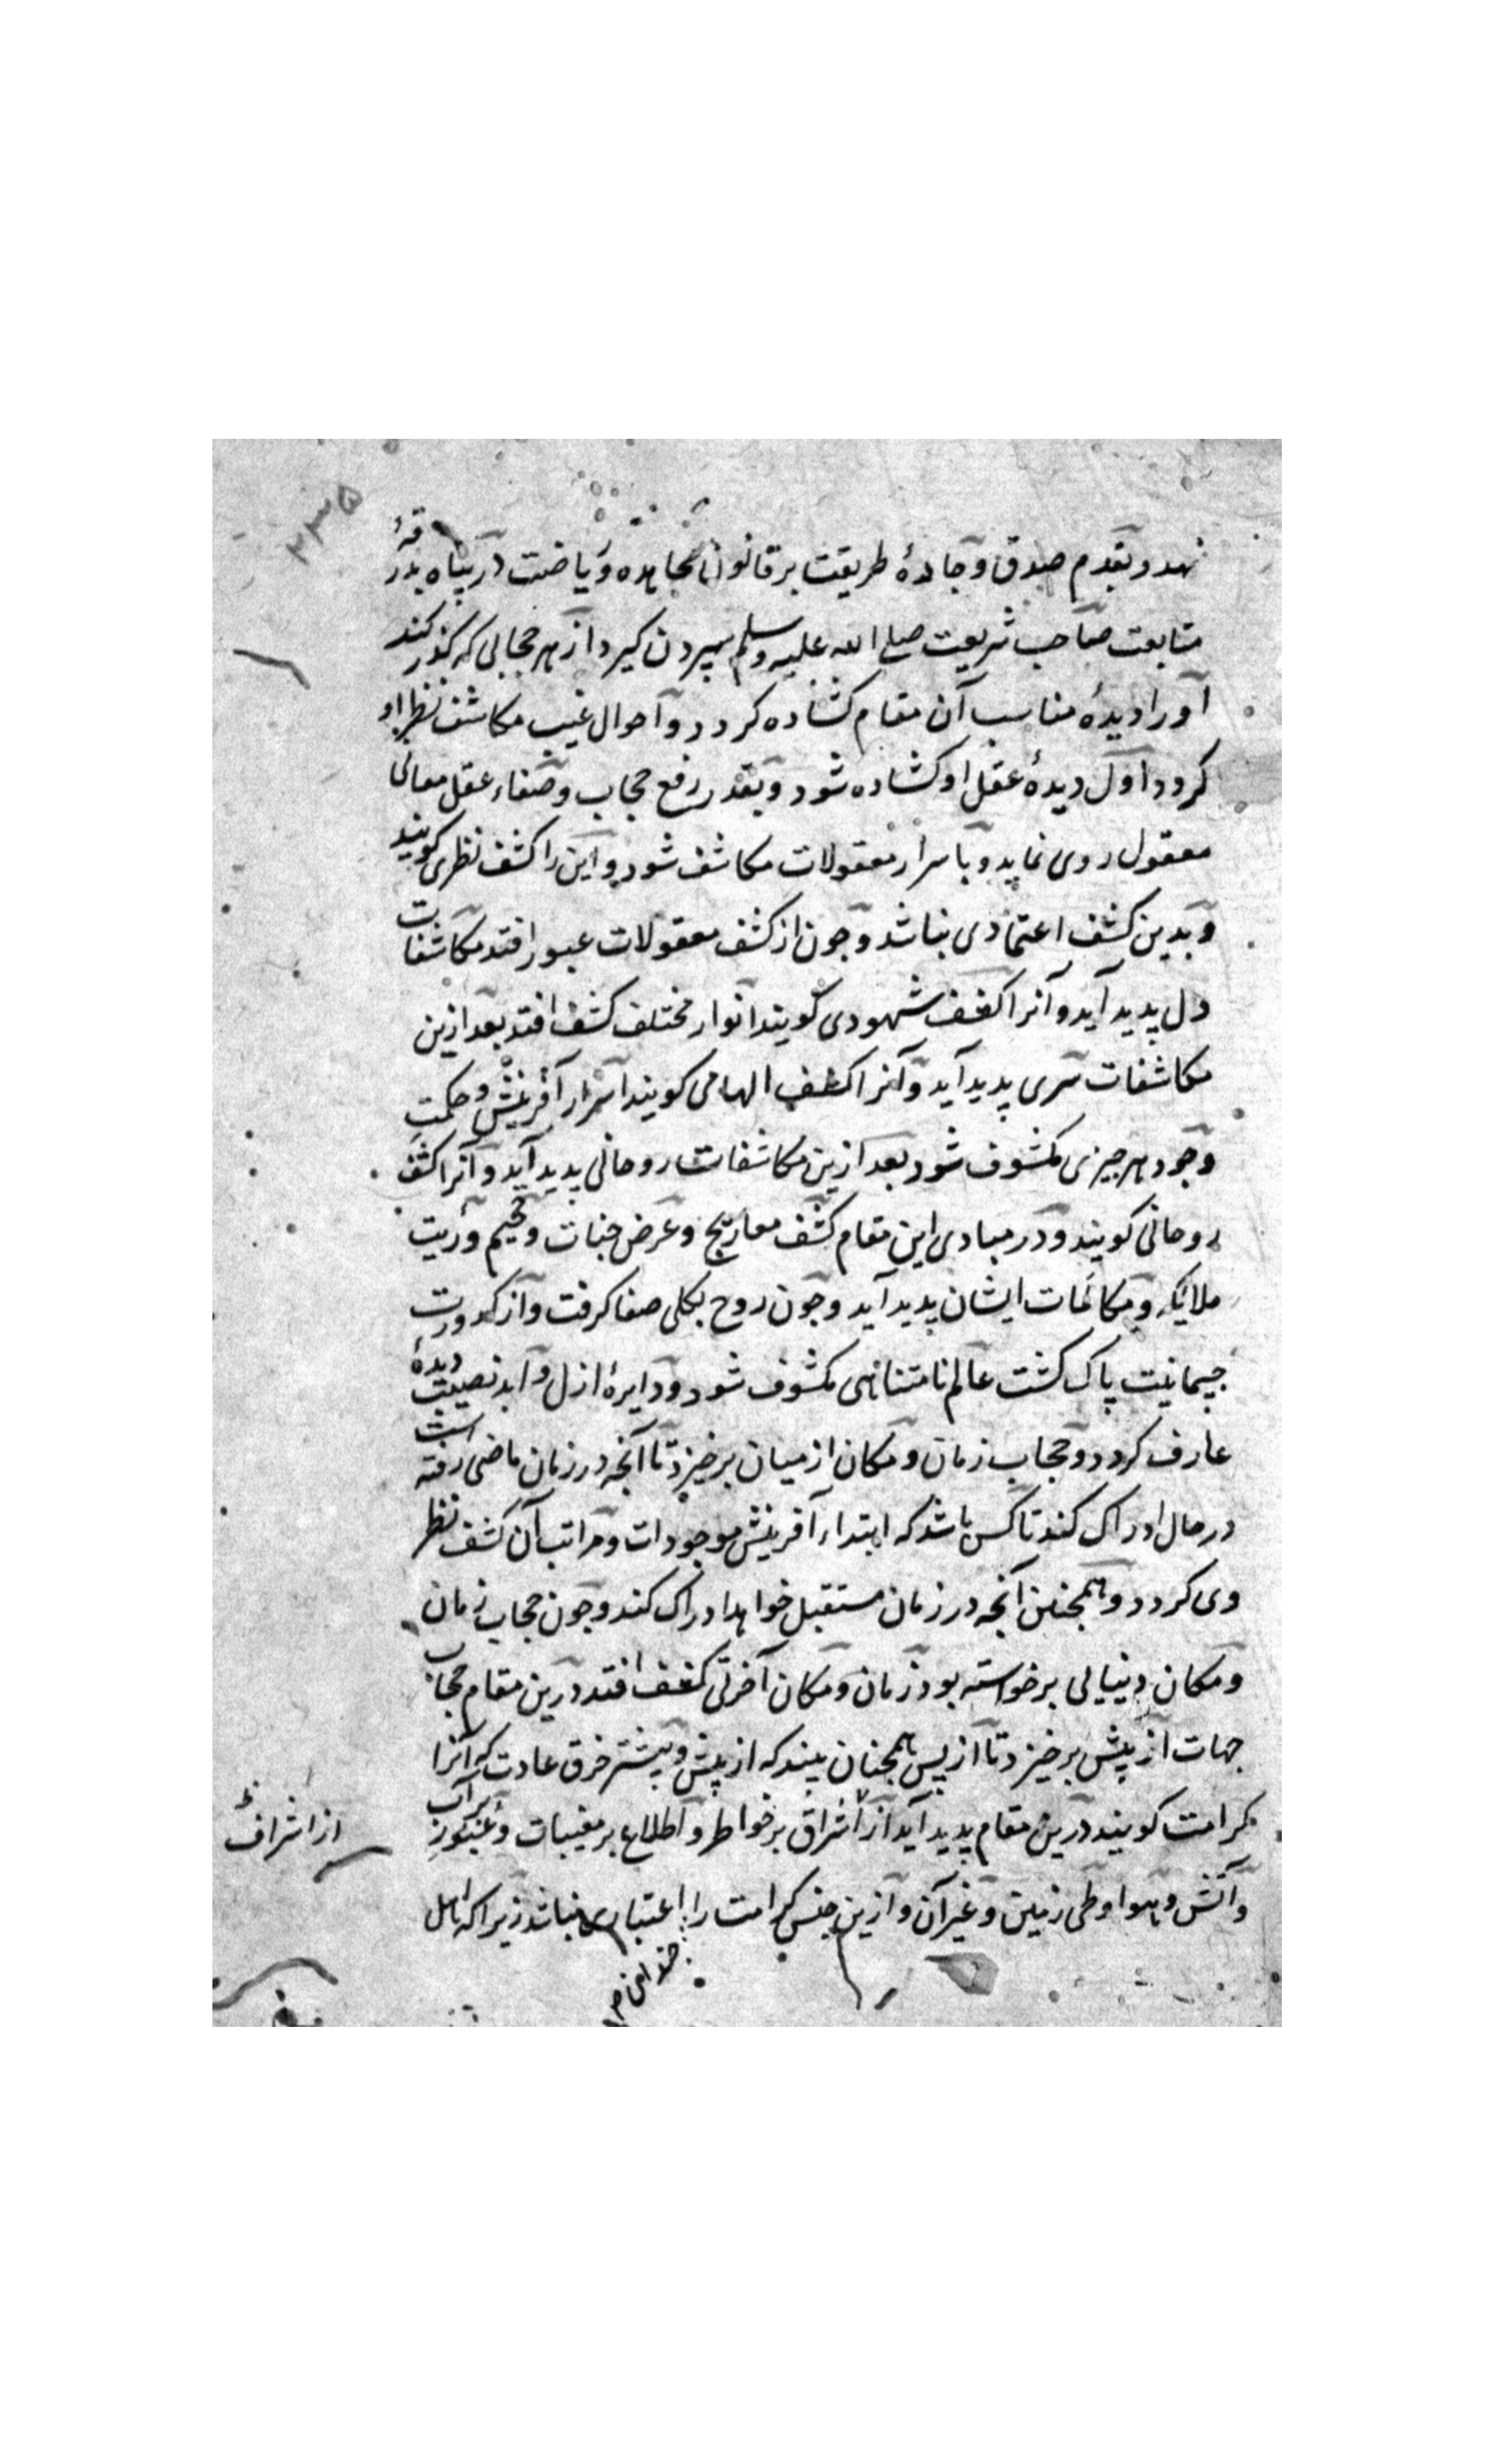 ۲۳۵
نهد و بقدم صدق و جادهٔ طریقت بر قانون مجاهده و ریاضت در پناه بدرقهٔ
متابعت صاحب شریعت صلی الله علیه و سلم سپردن کیرد از هر حجابی که کذر کند
او را دیدهٔ مناسب آن مقام کشاده کردد و احوال غیب مکاشف نظر او
کردد اول دیدهٔ عقل او کشاده شود و بقدر رفع حجاب و صفاء عقل معانی
معقول روی نماید و باسرار معقولات مکاشف شود و این را کشف نظری کویند
و بدین کشف اعتمادی نباشد و جون از کشف معقولات عبور افتد مکاشفات
دل پدید آید و آنرا کشف شهودی کویند انوار مختلف کشف افتد بعد ازین
مکاشفات سری پدید آید و آنرا کشف الهامی کویند اسرار آفرینش و حکمت
وجود هر جیزی مکشوف شود بعد ازین مکاشفات روحانی پدید آید و آنرا کشف
روحانی کویند و در مبادی این مقام کشف معاریج و عرض جنات و جحیم و رؤیت
ملایکه و مکالمات ایشان پدید آید و جون روح بکلی صفا کرفت و از کدورت
جسمانیت پاک کشت عالم نامتناهی مکشوف شود و دایرهٔ ازل و ابد نصیب دیدهٔ
عارف کردد و حجاب زمان و مکان از میان برخیزد تا آنجه در زمان ماضی رفته است
در حال ادراک کند تا کس باشد که ابتداء آفرینش موجودات و مراتب آن کشف نظر
وی کردد و همجنین آنجه در زمان مستقبل خواهد ادراک کند و جون حجاب زمان
و مکان دنیایی برخواسته بود زمان و مکان آخرتی کشف افتد درین مقام حجاب
جهات از پیش برخیزد تا از پس همجنان بیند که از پیش و بیشتر خرق عادت که آنرا
کرامت کویند درین مقام پدید آید از اشراق بر خواطر و اطلاع بر مغیبات و عبور بر آب
و آتش و هوا و طی زمین و غیر آن و ازین جنس کرامت را اعتباری نباشد زیرا که اهل
از اشراف